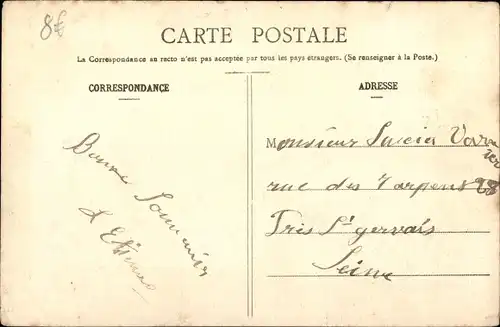 8€
CARTE POSTALE
La Correspondance au recto n'est pas acceptée par tous les pays étrangers. (Se renseigner à la Poste.)
CORRESPONDANCE
Bonne
ADRESSE
Monsieur Lucien
rue des 28
Pris St gervais
Seine